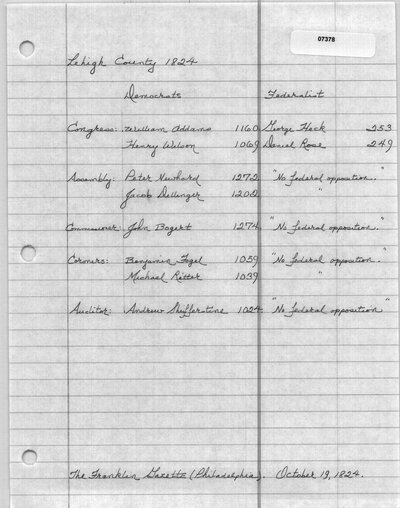 07378
Lehigh County 1824
Democrats Federalist
Congress: William Addams 1160 George Heck 253
Henry Wilson 1069 Daniel Rose 249
Assembly: Peter Newhard 1272 "No federal opposition."
Jacob Dillinger 1202 "
Commissioner: John Bogert 1274 "No federal opposition."
Coroners: Benjamin Fogel 1059 "No federal opposition."
Michael Ritter 1039 "
Auditor: Andrew 1024 "No federal opposition"
The Franklin Gazette (Philadelphia). October 19, 1824.